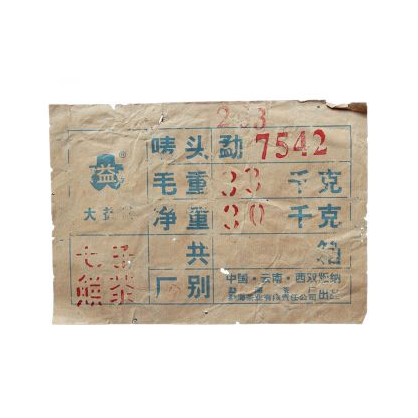 唛头 勐 7542
益®
毛重 33 千克
大益
净重 30 千克
七子 共 箱
饼茶 厂别 中国·云南·西双版纳
勐海茶业有限责任公司出品